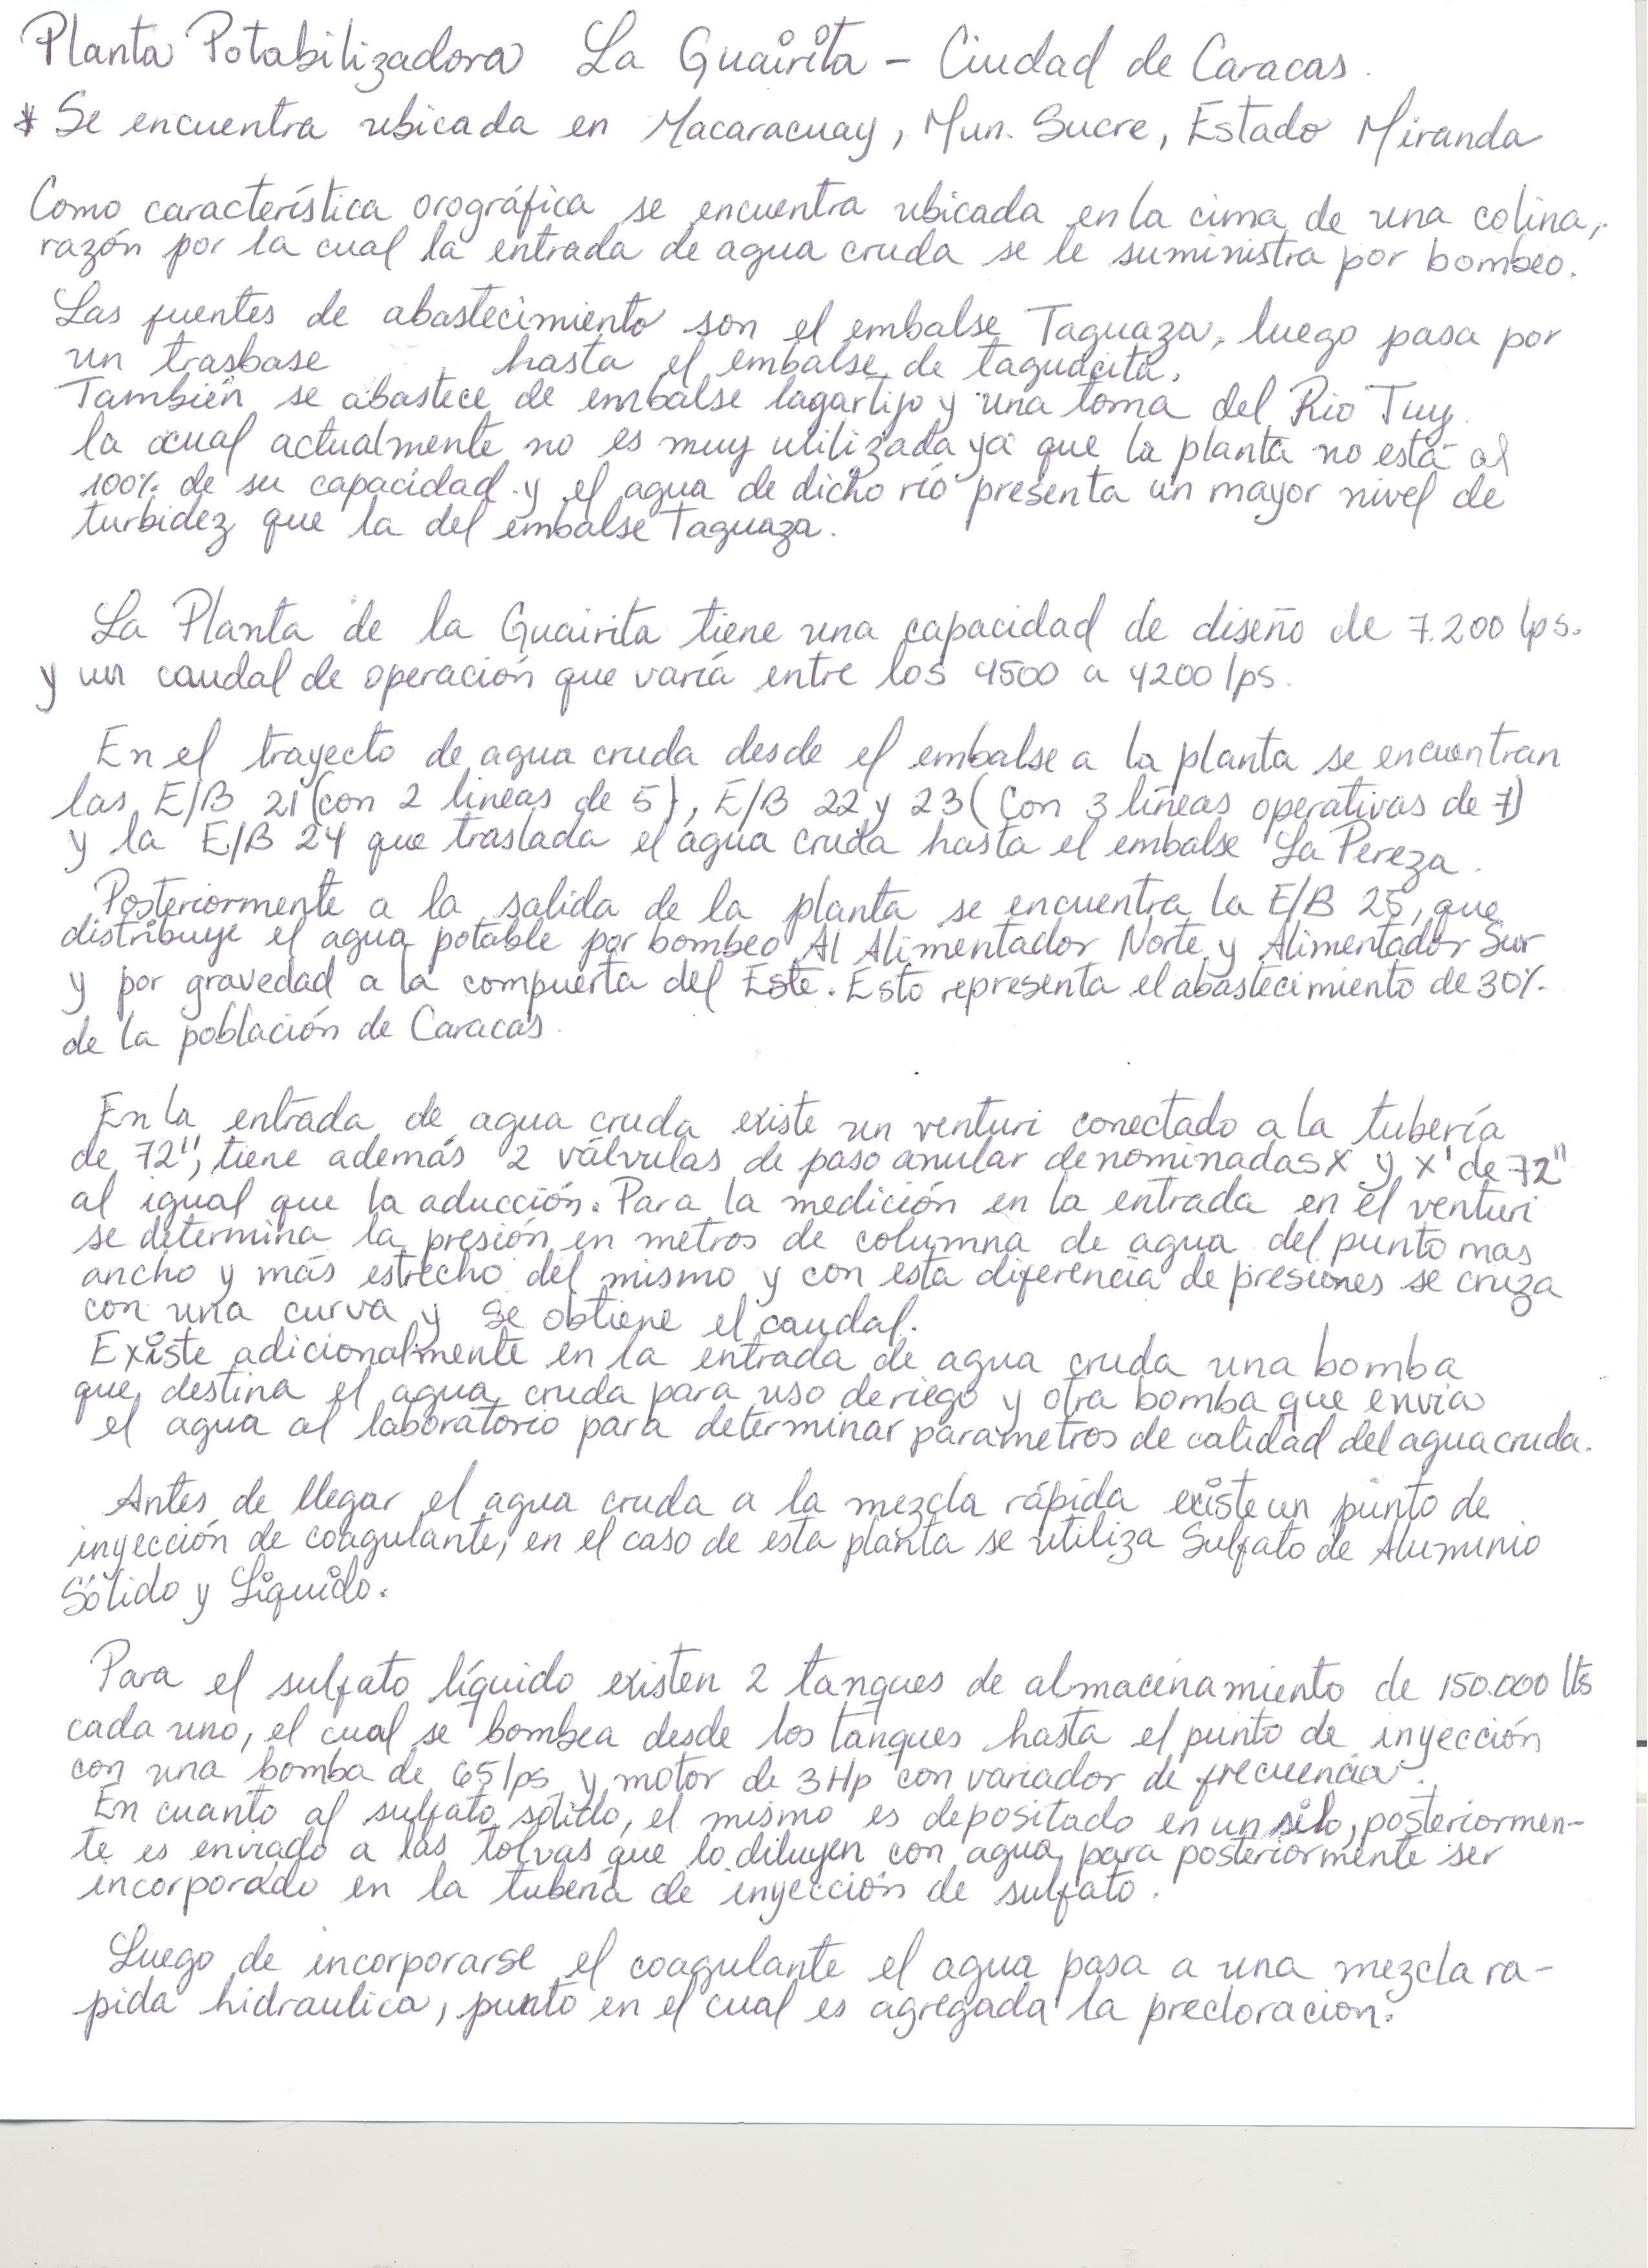 Planta Potabilizadora La Guairita - Ciudad de Caracas.
* Se encuentra ubicada en Macaracuay, Mun. Sucre, Estado Miranda
Como característica orográfica se encuentra ubicada en la cima de una colina,
razón por la cual la entrada de agua cruda se le suministra por bombeo.
Las fuentes de abastecimiento son el embalse Taguaza, luego pasa por
un trasbase hasta el embalse de taguacita.
También se abastece de embalse lagartijo y una toma del Rio Tuy
la cual actualmente no es muy utilizada ya que la planta no está al
100% de su capacidad y el agua de dicho río presenta un mayor nivel de
turbidez que la del embalse Taguaza.
La Planta de la Guairita tiene una capacidad de diseño de 7.200 lps.
y un caudal de operación que varía entre los 4500 a 4200 lps.
En el trayecto de agua cruda desde el embalse a la planta se encuentran
las E/B 21 (con 2 lineas de 5), E/B 22 y 23 (Con 3 líneas operativas de 7)
y la E/B 24 que traslada el agua cruda hasta el embalse La Pereza.
Posteriormente a la salida de la planta se encuentra la E/B 25, que
distribuye el agua potable por bombeo Al Alimentador Norte y Alimentador Sur
y por gravedad a la compuerta del Este. Esto representa el abastecimiento de 30%
de la población de Caracas.
En la entrada de agua cruda existe un venturi conectado a la tubería
de 72", tiene además 2 válvulas de paso anular denominadas X y X' de 72"
al igual que la aducción. Para la medición en la entrada en el venturi
se determina la presión en metros de columna de agua del punto mas
ancho y más estrecho del mismo y con esta diferencia de presiones se cruza
con una curva y se obtiene el caudal.
Existe adicionalmente en la entrada de agua cruda una bomba
que destina el agua cruda para uso de riego y otra bomba que envia
el agua al laboratorio para determinar parámetros de calidad del agua cruda.
Antes de llegar el agua cruda a la mezcla rápida existe un punto de
inyección de coagulante, en el caso de esta planta se utiliza Sulfato de Aluminio
Sólido y Líquido.
Para el sulfato líquido existen 2 tanques de almacenamiento de 150.000 lts
cada uno, el cual se bombea desde los tanques hasta el punto de inyección
con una bomba de 65 lps y motor de 3 Hp con variador de frecuencia.
En cuanto al sulfato sólido, el mismo es depositado en un silo, posteriormen-
te es enviado a las tolvas que lo diluyen con agua para posteriormente ser
incorporado en la tubería de inyección de sulfato.
Luego de incorporarse el coagulante el agua pasa a una mezcla ra-
pida hidraulica, punto en el cual es agregada la precloracion.